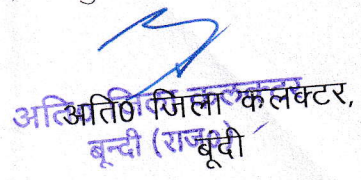 अति० जिला कलक्टर,
बूंदी
अति० जिला कलक्टर
बून्दी (राज०)